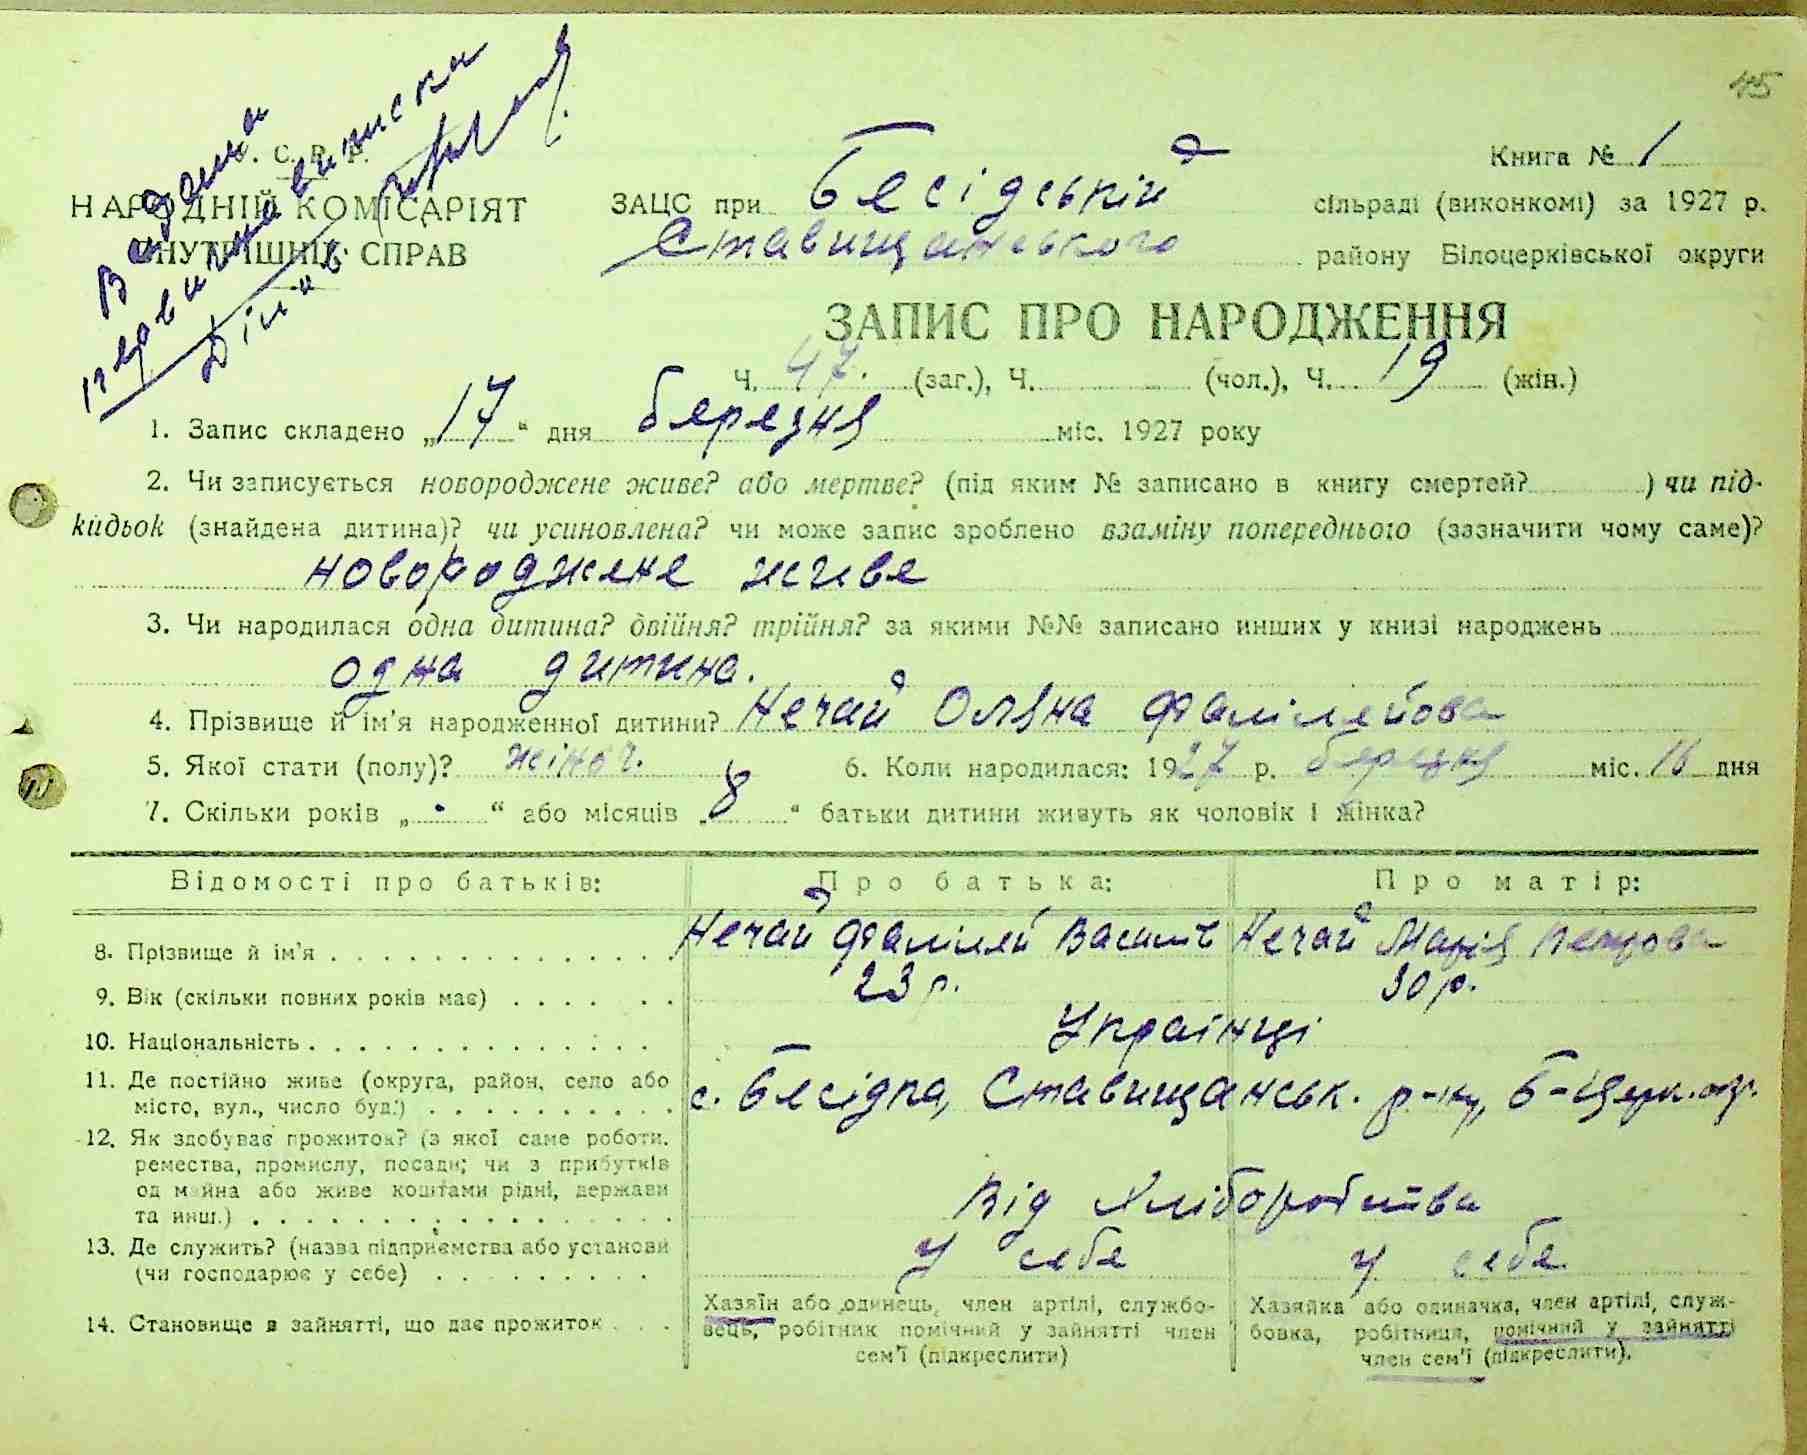 45
Видана
первична виписка
У. С. Р. Р.
НАРОДНІЙ КОМІСАРІЯТ
ВНУТРІШНІХ СПРАВ
ЗАЦС при Бесідській
Книга № 1
сільраді (виконкомі) за 1927 р.
Ставищанського району Білоцерківської округи
ЗАПИС ПРО НАРОДЖЕННЯ
Ч. 47. (заг.), Ч. (чол.), Ч. 19 (жін.)
1. Запис складено „17“ дня березня міс. 1927 року
2. Чи записується новороджене живе? або мертве? (під яким № записано в книгу смертей? ) чи під-
кидьок (знайдена дитина)? чи усиновлена? чи може запис зроблено взаміну попереднього (зазначити чому саме)?
новороджене живе
3. Чи народилася одна дитина? двійня? трійня? за якими №№ записано инших у книзі народжень
одна дитина.
4. Прізвище й ім'я народженної дитини? Нечай Оляна Фамілейова
5. Якої стати (полу)? жіноч. 6. Коли народилася: 1927 р. березня міс. 16 дня
7. Скільки років „ “ або місяців „8“ батьки дитини живуть як чоловік і жінка?
Відомості про батьків: Про батька: Про матір:
8. Прізвище й ім'я Нечай Фамілей Василів Нечай Марія Петрова
9. Вік (скільки повних років має) 23 р. 30 р.
10. Національність Українці
11. Де постійно живе (округа, район, село або
місто, вул., число буд.) с. Бесідка, Ставищанськ. р-ну, Б-Церк. окр.
12. Як здобуває прожиток? (з якої саме роботи,
ремества, промислу, посади; чи з прибутків
од майна або живе коштами рідні, держави
та инш.) Від хліборобства
13. Де служить? (назва підприємства або установи
(чи господарює у себе) У себе У себе
14. Становище в зайнятті, що дає прожиток
Хазяїн або одинець, член артілі, службо-
вець, робітник помічний у зайнятті член
сем'ї (підкреслити)
Хазяйка або одиначка, член артілі, служ-
бовка, робітниця, помічний у зайнятті
член сем'ї (підкреслити).